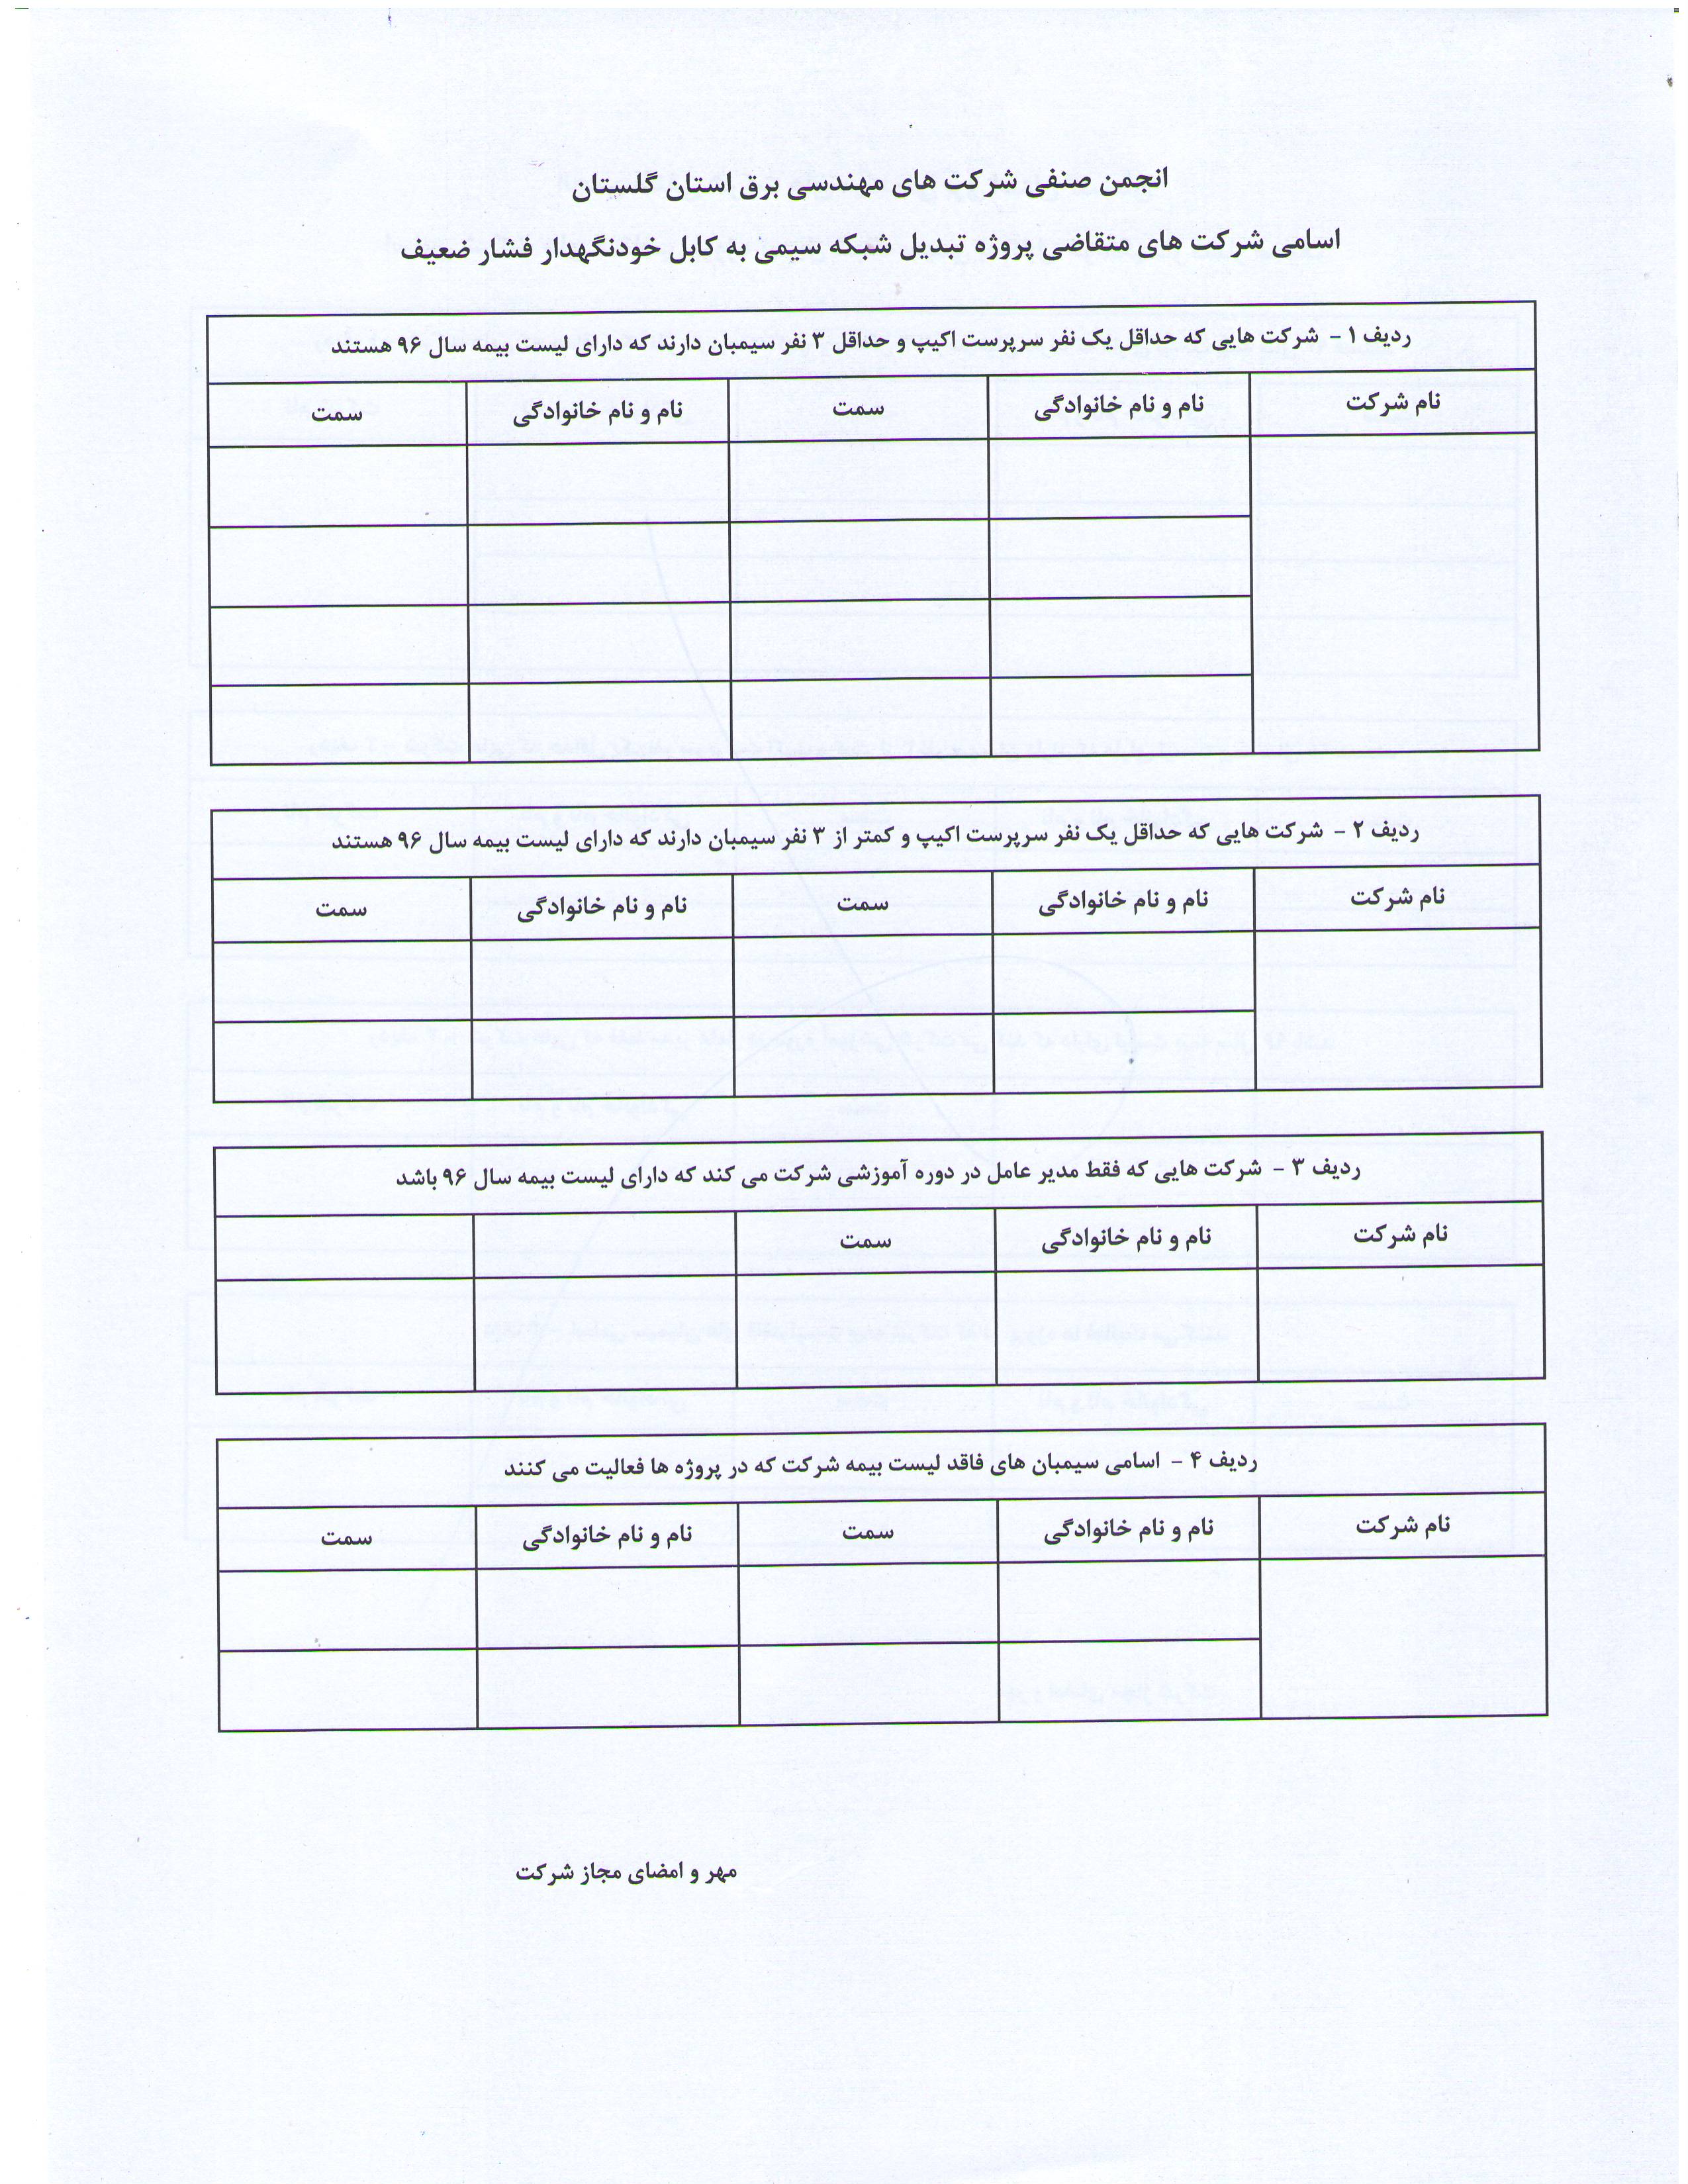 انجمن صنفی شرکت های مهندسی برق استان گلستان
اسامی شرکت های متقاضی پروژه تبدیل شبکه سیمی به کابل خودنگهدار فشار ضعیف
ردیف ۱ - شرکت هایی که حداقل یک نفر سرپرست اکیپ و حداقل ۳ نفر سیمبان دارند که دارای لیست بیمه سال ۹۶ هستند
نام شرکت نام و نام خانوادگی سمت نام و نام خانوادگی سمت
ردیف ۲ - شرکت هایی که حداقل یک نفر سرپرست اکیپ و کمتر از ۳ نفر سیمبان دارند که دارای لیست بیمه سال ۹۶ هستند
نام شرکت نام و نام خانوادگی سمت نام و نام خانوادگی سمت
ردیف ۳ - شرکت هایی که فقط مدیر عامل در دوره آموزشی شرکت می کند که دارای لیست بیمه سال ۹۶ باشد
نام شرکت نام و نام خانوادگی سمت
ردیف ۴ - اسامی سیمبان های فاقد لیست بیمه شرکت که در پروژه ها فعالیت می کنند
نام شرکت نام و نام خانوادگی سمت نام و نام خانوادگی سمت
مهر و امضای مجاز شرکت